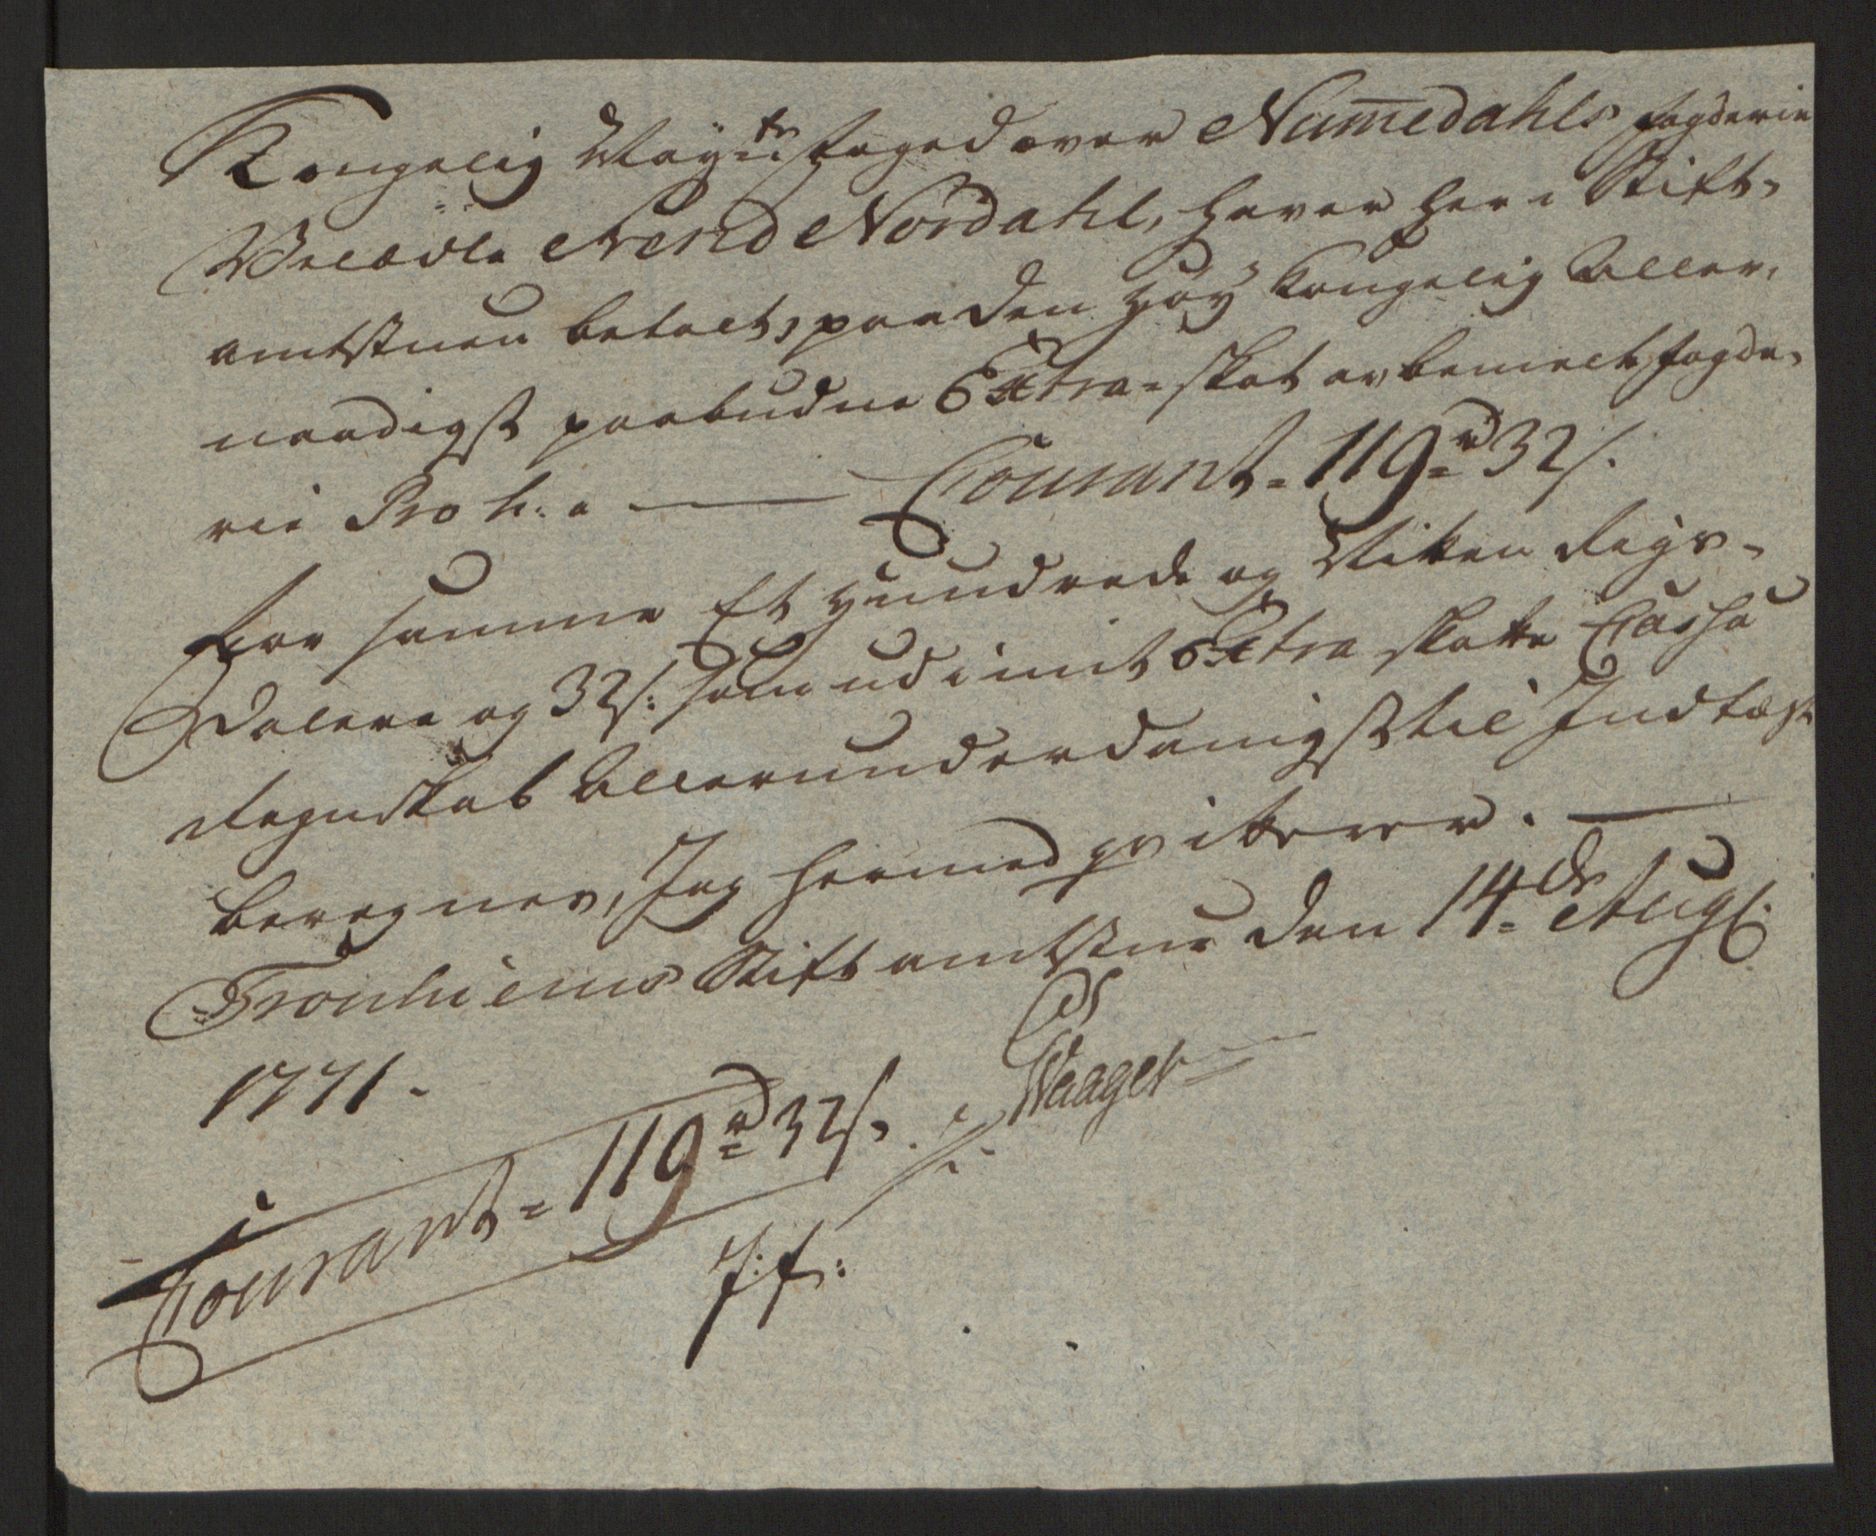 Kongelig Mayts foged over Nummedahls fogderie
Velædle Svend Nordahl, haver her i Stift-
amtstuen betalt, paa den høy Kongelig Aller-
naadigst paabudne Extra-skat av bemelte fogde-
rie Pro h: a Courant = 119 rd 32 s.
for samme Et Hundrede og Nitten Rigs-
dalere og 32 s: som udi mit Extra skatte Cassa
Regnskab Allerunderdanigst til Indtægt
beregnes, Jeg hermed qvitterer.
Tronhiems Stiftamtstue den 14de Augs:
1771.
Waager
Courant = 119 rd 32 s.
J: f: